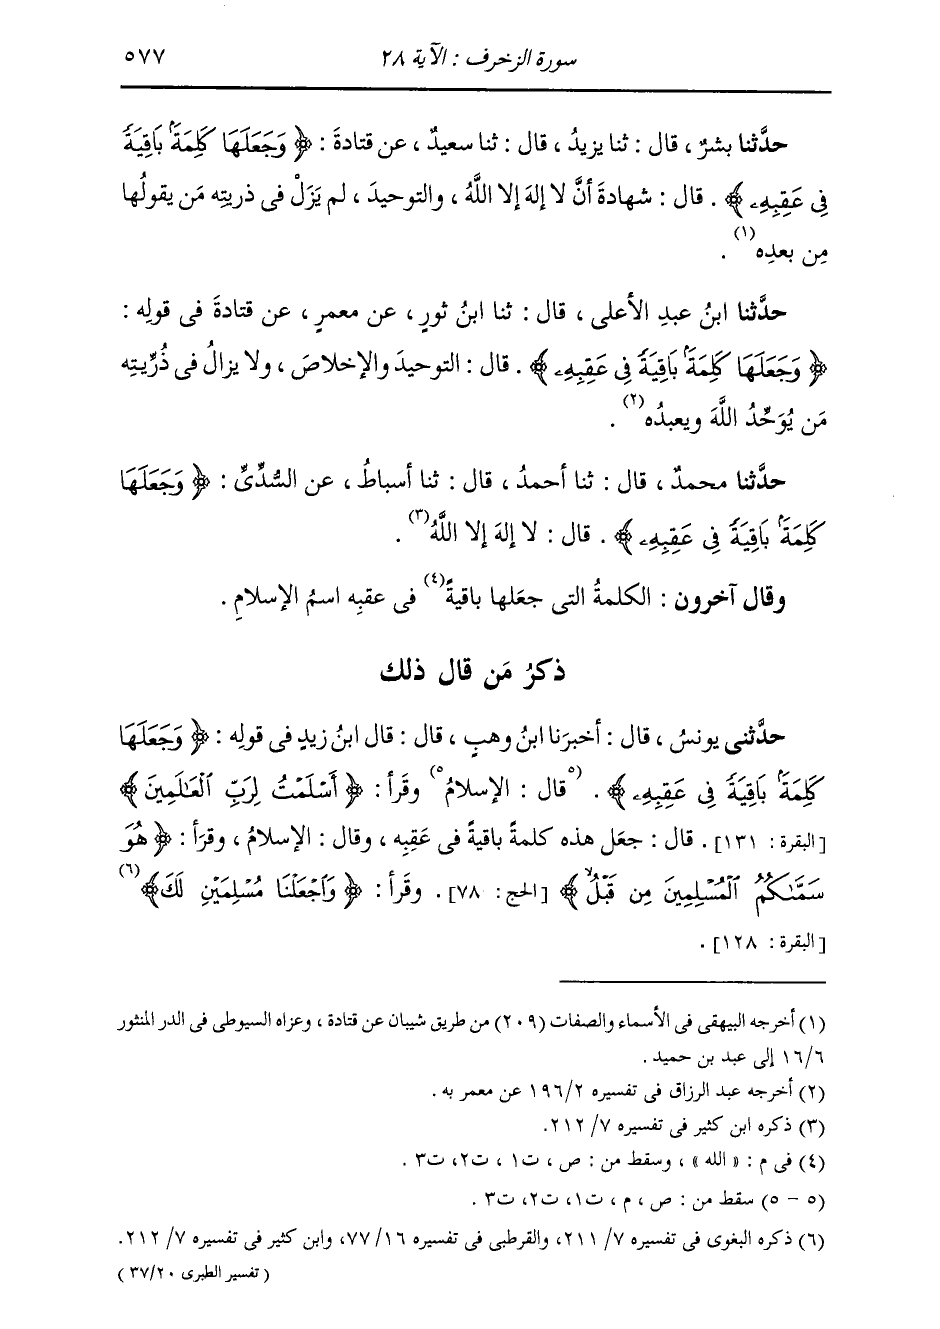 سورة الزخرف : الآية ٢٨ ٥٧٧
حدَّثنا بشرٌ ، قال : ثنا يزيدُ ، قال : ثنا سعيدٌ ، عن قتادةَ : ﴿ وَجَعَلَهَا كَلِمَةً بَاقِيَةً
فِى عَقِبِهِۦ ﴾ . قال : شهادةَ أنَّ لا إلهَ إلا اللَّهُ ، والتوحيدَ ، لم يَزَلْ فى ذريتِه مَن يقولُها
مِن بعدِه (١) .
حدَّثنا ابنُ عبدِ الأعلى ، قال : ثنا ابنُ ثورٍ ، عن معمرٍ ، عن قتادةَ فى قولِه :
﴿ وَجَعَلَهَا كَلِمَةً بَاقِيَةً فِى عَقِبِهِۦ ﴾ . قال : التوحيدَ والإخلاصَ ، ولا يزالُ فى ذُرِّيتِه
مَن يُوَحِّدُ اللَّهَ ويعبدُه (٢) .
حدَّثنا محمدٌ ، قال : ثنا أحمدُ ، قال : ثنا أسباطُ ، عن السُّدِّىِّ : ﴿ وَجَعَلَهَا
كَلِمَةً بَاقِيَةً فِى عَقِبِهِۦ ﴾ . قال : لا إلهَ إلا اللَّهُ (٣) .
وقال آخرون : الكلمةُ التى جعَلها باقيةً (٤) فى عقبِه اسمُ الإسلامِ .
ذكرُ مَن قال ذلك
حدَّثنى يونسُ ، قال : أخبرَنا ابنُ وهبٍ ، قال : قال ابنُ زيدٍ فى قولِه : ﴿ وَجَعَلَهَا
كَلِمَةً بَاقِيَةً فِى عَقِبِهِۦ ﴾ . (٥ قال : الإسلامُ ٥) وقَرأ : ﴿ أَسْلَمْتُ لِرَبِّ ٱلْعَٰلَمِينَ ﴾
[البقرة : ١٣١] . قال : جعَل هذه كلمةً باقيةً فى عَقِبِه ، وقال : الإسلامُ ، وقرَأ : ﴿ هُوَ
سَمَّىٰكُمُ ٱلْمُسْلِمِينَ مِن قَبْلُ ﴾ [الحج : ٧٨] . وقَرأ : ﴿ وَٱجْعَلْنَا مُسْلِمَيْنِ لَكَ ﴾ (٦)
[البقرة : ١٢٨] .
(١) أخرجه البيهقى فى الأسماء والصفات (٢٠٩) من طريق شيبان عن قتادة ، وعزاه السيوطى فى الدر المنثور
١٦/٦ إلى عبد بن حميد .
(٢) أخرجه عبد الرزاق فى تفسيره ١٩٦/٢ عن معمر به .
(٣) ذكره ابن كثير فى تفسيره ٧/ ٢١٢.
(٤) فى م : « الله » ، وسقط من : ص ، ت١ ، ت٢، ت٣ .
(٥ - ٥) سقط من : ص ، م ، ت١، ت٢، ت٣ .
(٦) ذكره البغوى فى تفسيره ٧/ ٢١١، والقرطبى فى تفسيره ٧٧/١٦، وابن كثير فى تفسيره ٧/ ٢١٢.
( تفسير الطبرى ٣٧/٢٠ )